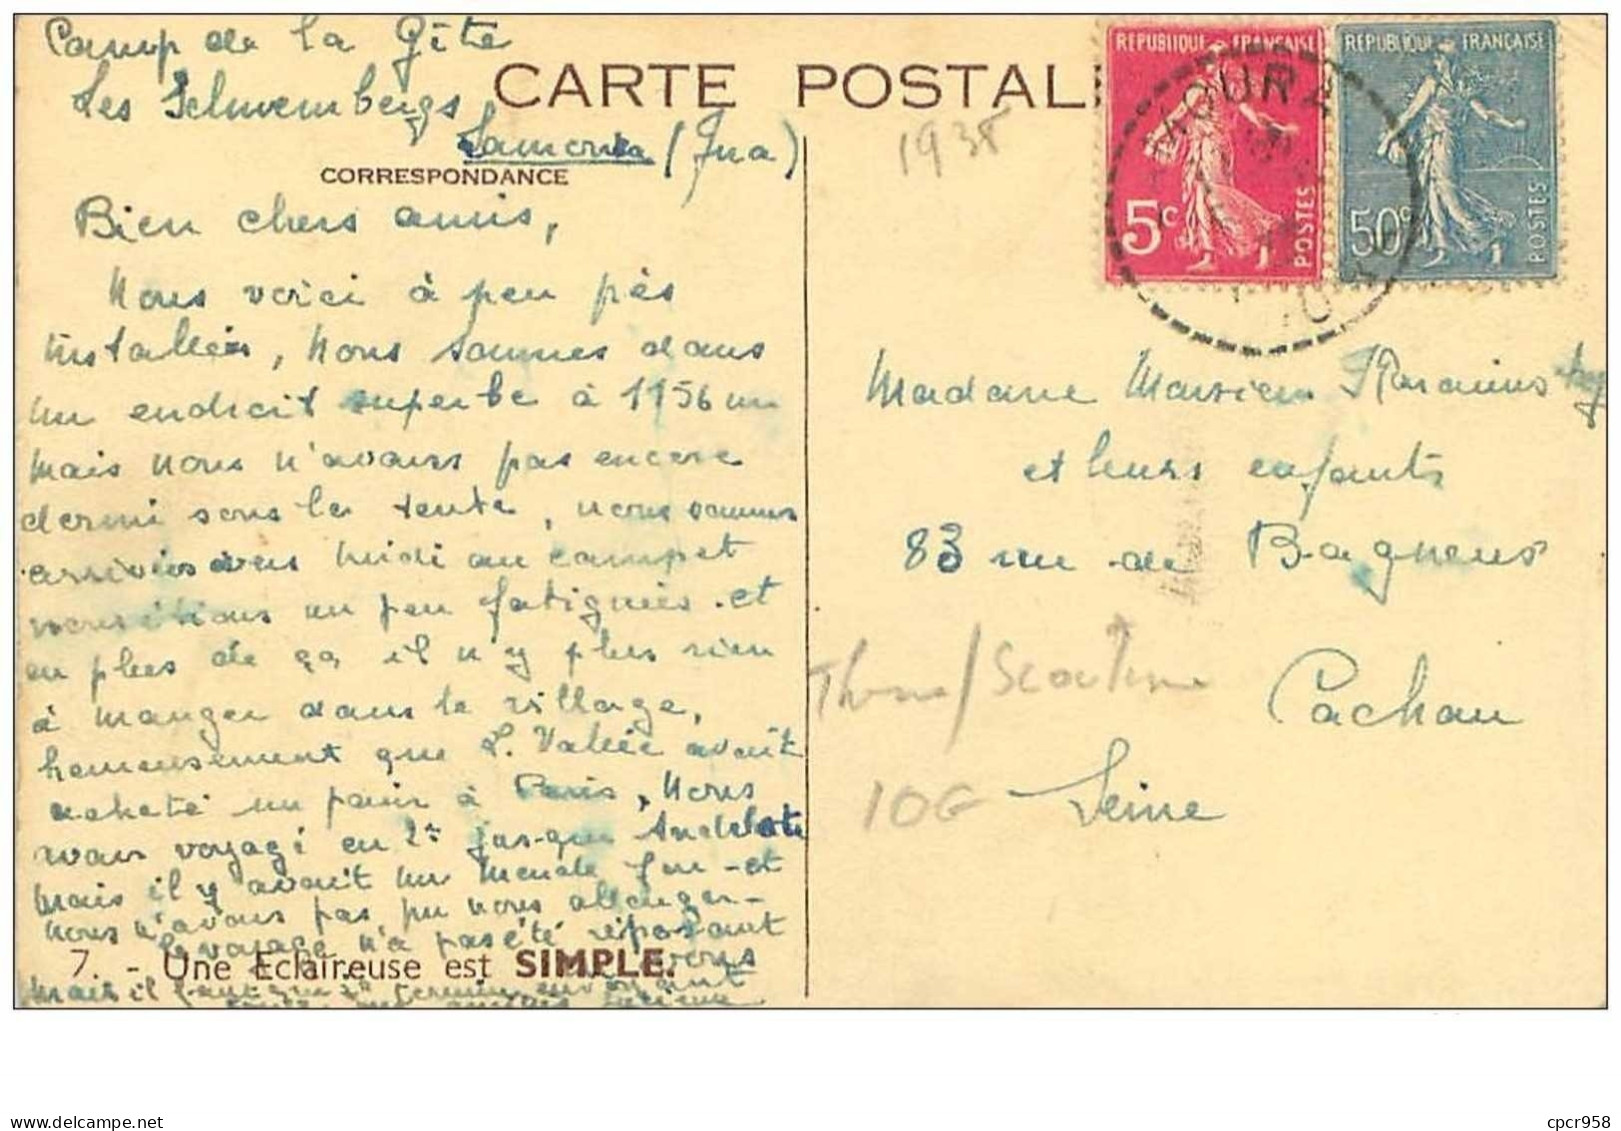 Camp de la Gîte
Les
Lamoura (Jura)
CARTE POSTAL
CORRESPONDANCE
1938
REPUBLIQUE FRANÇAISE
5c
POSTES
REPUBLIQUE FRANÇAISE
50c
POSTES
Bien chers amis,
Nous voici à peu près
installées, nous sommes dans
un endroit superbe à 1156 m
mais nous n'avons pas encore
dormi sous la tente, nous sommes
arrivées vers midi au camp et
nous étions un peu fatiguées et
en plus de ça il n'y plus rien
à manger dans le village,
heureusement que L. Vallée avait
acheté un pain à Paris, Nous
avons voyagé en 2e jusque Andelot
mais il y avait un monde fou et
nous n'avons pas pu nous allonger
le voyage n'a pas été reposant
mais il faut
7. - Une Eclaireuse est SIMPLE.
Madame Monsieur
et leurs enfants
83 rue de Bagneux
Cachan
Seine
Thème/Scoutisme
10G
cpcr958